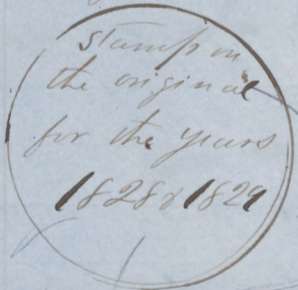 Stamp on
the original
for the years
1828 & 1829